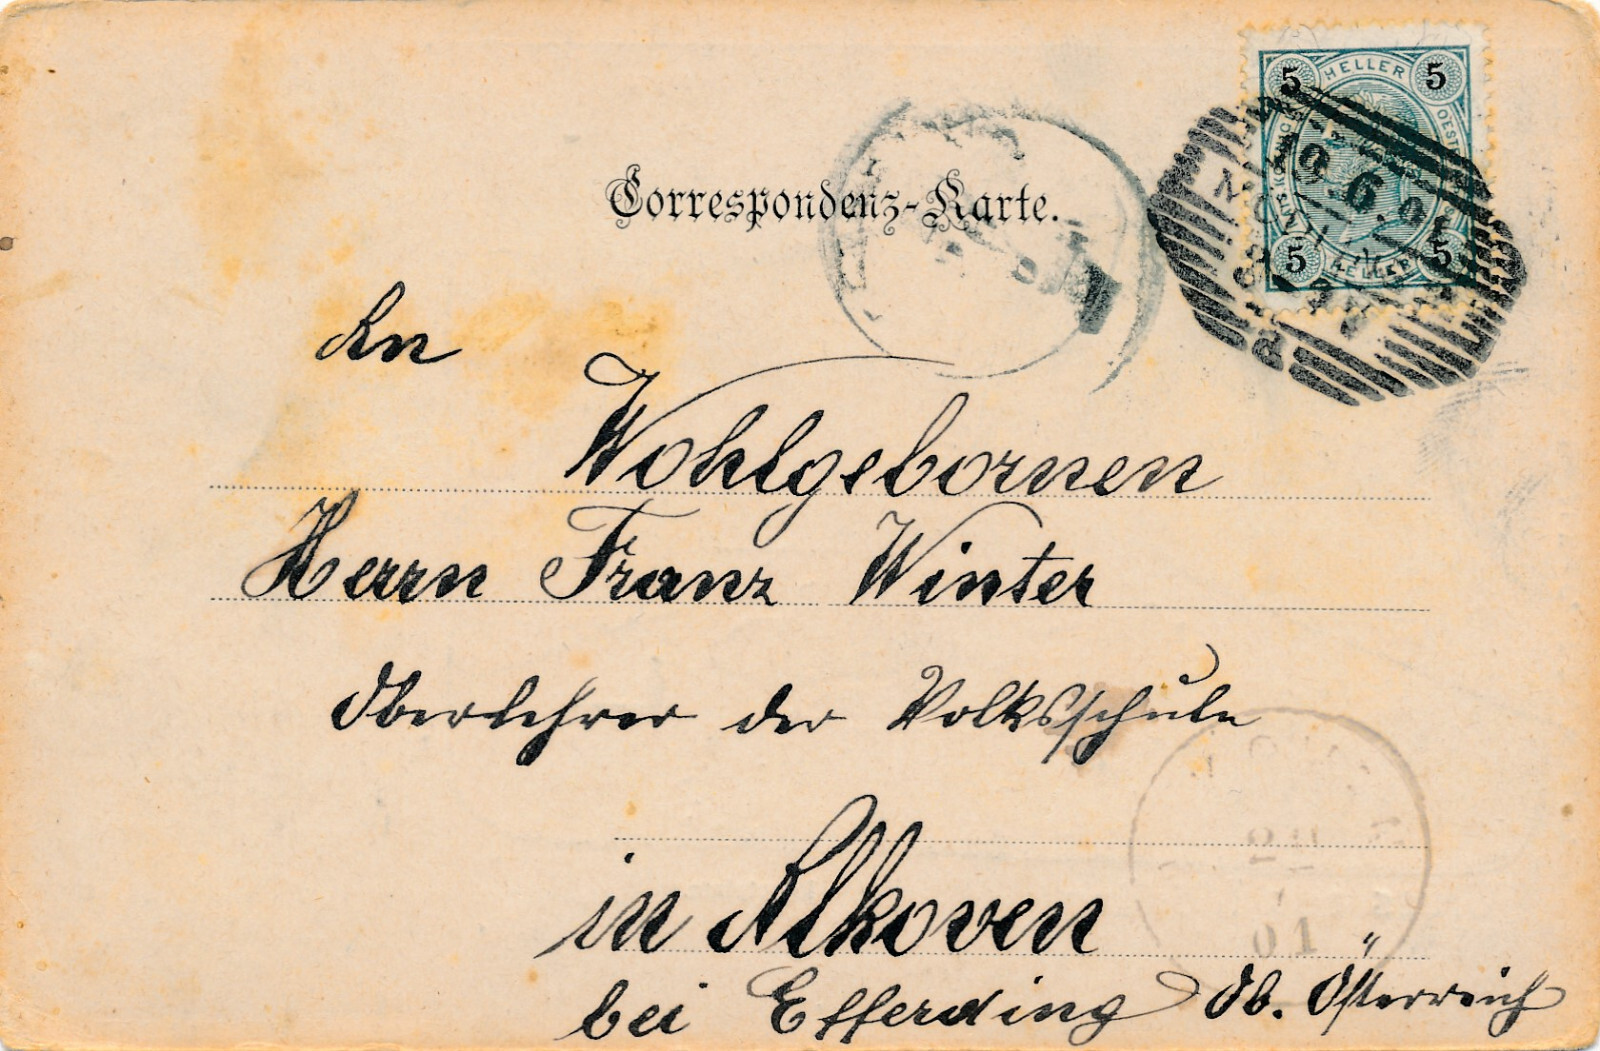 5 HELLER 5
19.6.01
Correspondenz-Karte.
5 HELLER 5
An
Wohlgebornen
Herrn Franz Winter
Oberlehrer der Volksschule
in Alkoven
01
bei Efferding Ob. Österreich